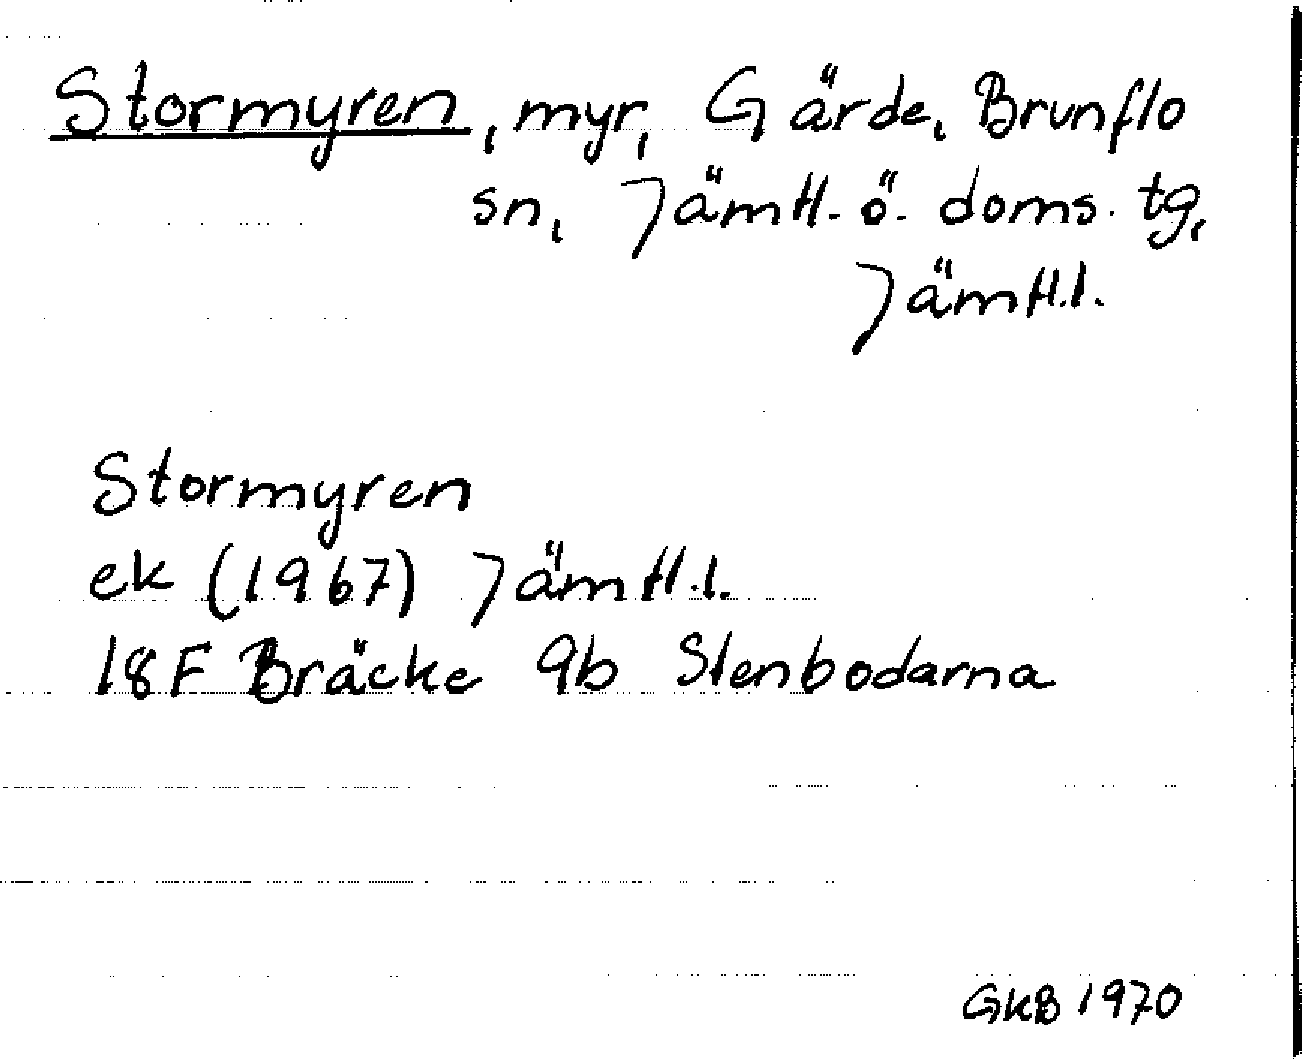 Stormyren, myr, Gärde, Brunflo
sn, Jämtl. ö. doms. tg,
Jämtl.l.
Stormyren
ek (1967) Jämtl.l.
18F Bräcke 9b Stenbodarna
GKB 1970